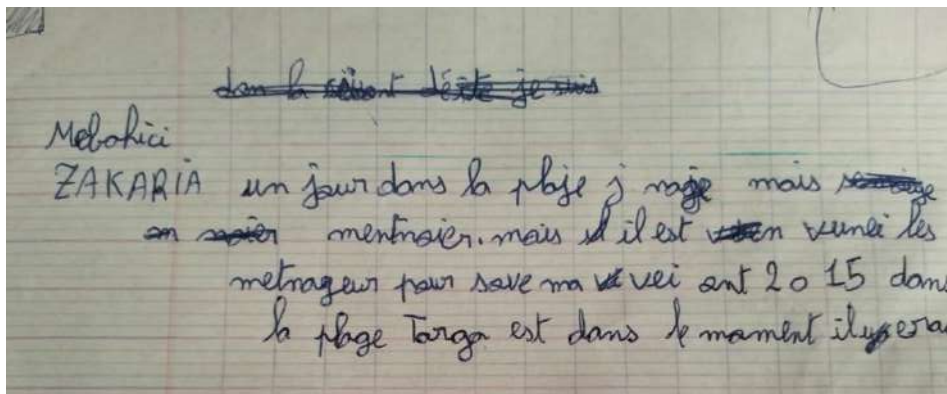 dans la saisont d'éite je suis
Mebahici
ZAKARIA un jour dans la plaje j nage mais
mentnoier. mais il est veunei les
metnageur pour save ma vei ant 2015 dans
la plage Targa est dans le moment il y